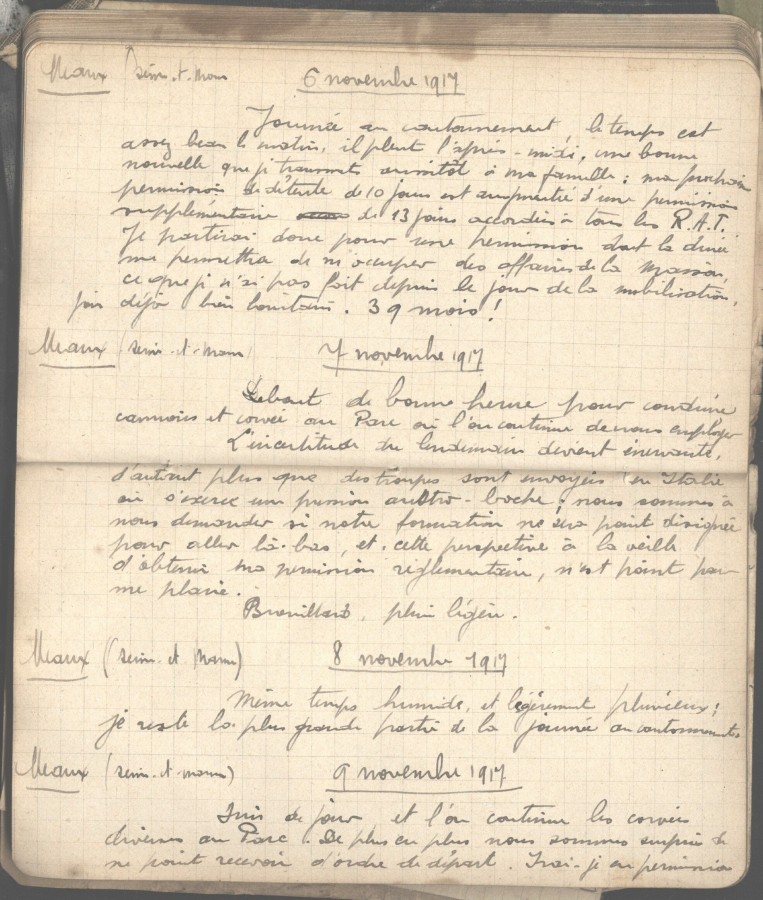 Meaux (Seine-et-Marne 6 novembre 1917
Journée au cantonnement, le temps est
assez beau le matin, il pleut l'après-midi, une bonne
nouvelle que je transmets aussitôt à ma famille : ma prochaine
permission de détente de 10 jours est augmentée d'une permission
supplémentaire de 13 jours accordées à tous les R.A.T.
Je partirai donc pour une permission dont la durée
me permettra de m'occuper des affaires de la Maison,
ce que je n'ai pas fait depuis le jour de la mobilisation,
jour déjà bien lointain. 39 mois !
Meaux (Seine-et-Marne) 7 novembre 1917
Debout de bonne heure pour conduire
camions et corvée au Parc où l'on continue de nous employer
L'incertitude du lendemain devient énervante,
d'autant plus que des troupes sont envoyées en Italie
où s'exerce une pression austro-boche ; nous sommes à
nous demander si notre formation ne sera point désignée
pour aller là-bas, et cette perspective à la veille
d'obtenir ma permission réglementaire, n'est point pour
me plaire.
Brouillard, pluie légère.
Meaux (Seine-et-Marne) 8 novembre 1917
Même temps humide, et légèrement pluvieux ;
je reste la plus grande partie de la journée au cantonnement
Meaux (Seine-et-Marne) 9 novembre 1917
Suis de jour et l'on continue les corvées
diverses au Parc. De plus en plus nous sommes surpris de
ne point recevoir d'ordre de départ. Irai-je en permission